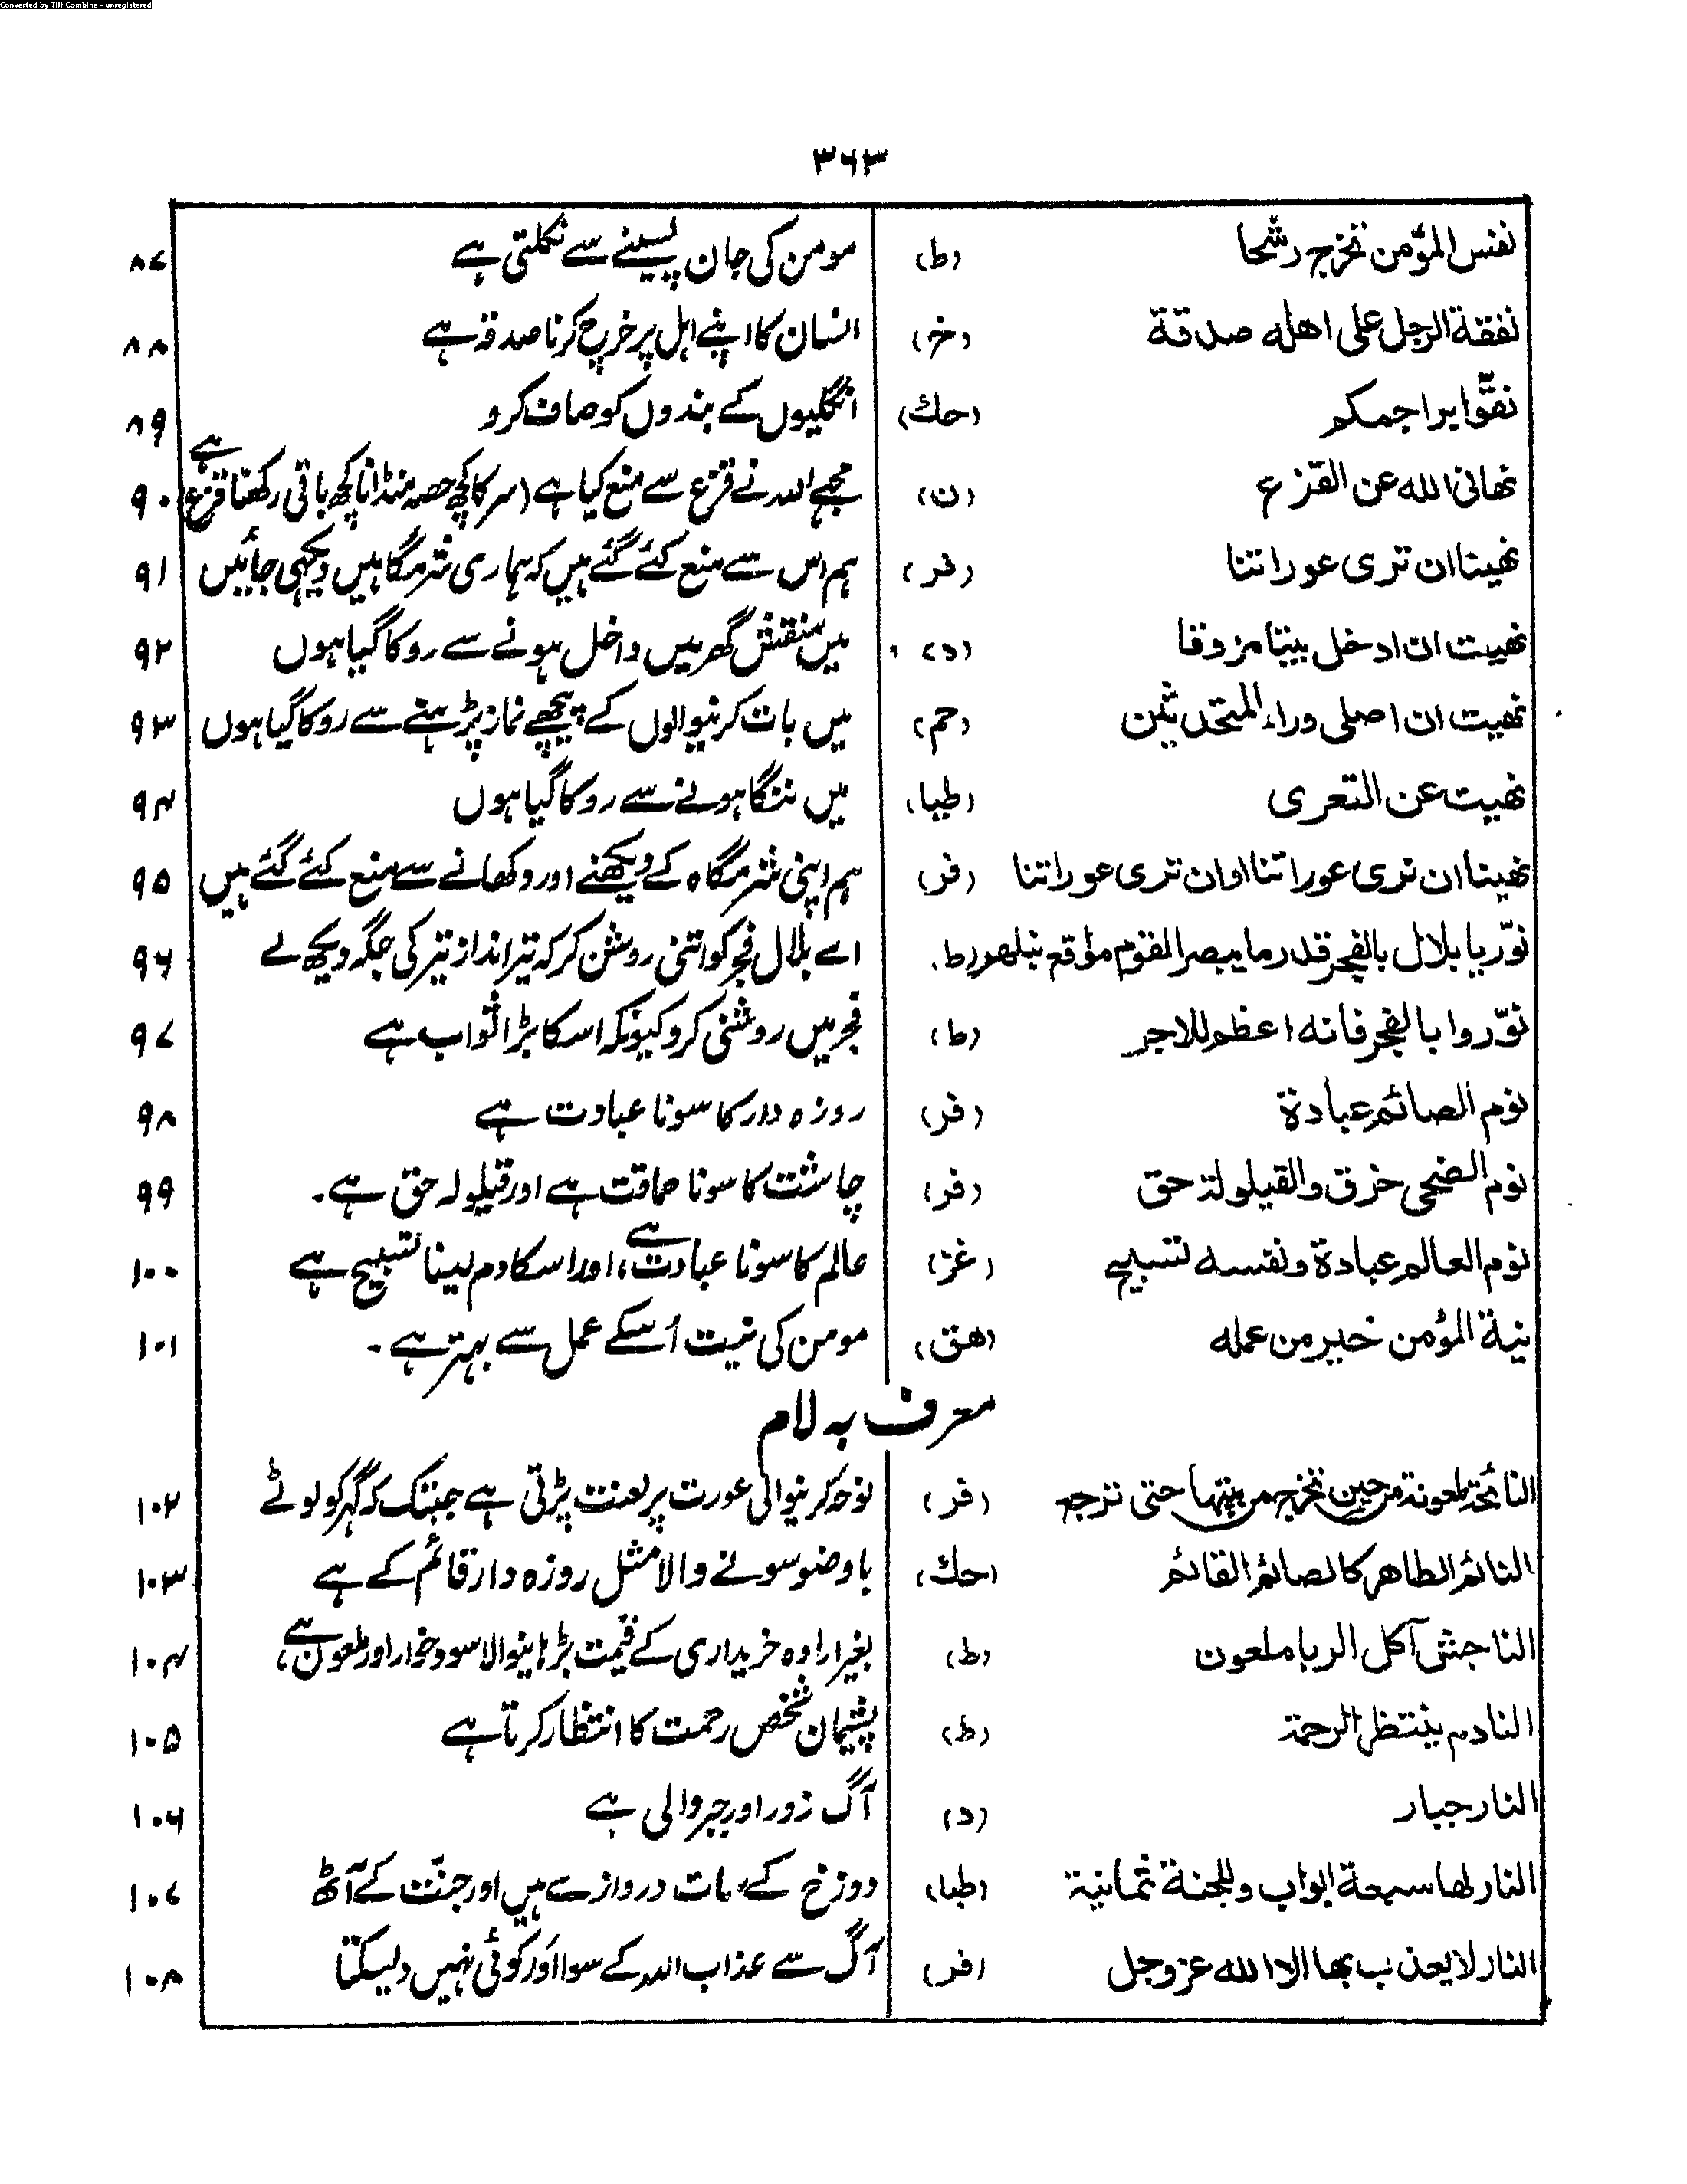 Converted by Tiff Combine - unregistered
۳۶۳
نفس المؤمن تخرج رشحا (ط) مومن کی جان پسینے سے نکلتی ہے ۸۷
نفقة الرجل علی اهله صدقة (خ) انسان کا اپنے اہل پر خرچ کرنا صدقہ ہے ۸۸
نقّوا براجمكم (حك) انگلیوں کے بندوں کو صاف کرو ۸۹
نهانی الله عن القزع (ن) مجھے اللہ نے قزع سے منع کیا ہے (سر کا کچھ حصہ منڈانا کچھ باقی رکھنا قزع ہے ۹۰
نهینا ان تری عوراتنا (فر) ہم اس سے منع کئے گئے ہیں کہ ہماری شرمگاہیں دیکھی جائیں ۹۱
نهیت ان ادخل بیتا مزوقا (د) میں منقش گھر میں داخل ہونے سے روکا گیا ہوں ۹۲
نهیت ان اصلی وراء المتحدثین (حم) میں بات کرنیوالوں کے پیچھے نماز پڑہنے سے روکا گیا ہوں ۹۳
نهیت عن التعری (طیا) میں ننگا ہونے سے روکا گیا ہوں ۹۴
نهینا ان نری عوراتنا او ان تری عوراتنا (فر) ہم اپنی شرمگاہ کے دیکھنے اور دکھانے سے منع کئے گئے ہیں ۹۵
نوّر یا بلال بالفجر قدر ما یبصر القوم مواقع نبلهم (ط) اے بلال فجر کو اتنی روشن کر کہ تیر انداز تیر کی جگہ دیکھ لے ۹۶
نوّروا بالفجر فانه اعظم للاجر (ط) فجر میں روشنی کرو کیونکہ اسکا بڑا ثواب ہے ۹۷
نوم الصائم عبادة (فر) روزہ دار کا سونا عبادت ہے ۹۸
نوم الضحی خرق والقیلولة حق (فر) چاشت کا سونا حماقت ہے اور قیلولہ حق ہے۔ ۹۹
نوم العالم عبادة ونفسه تسبیح (غز) عالم کا سونا عبادت ہے، اور اسکا دم لینا تسبیح ہے ۱۰۰
نیة المؤمن خیر من عمله (هق) مومن کی نیت اُسکے عمل سے بہتر ہے۔ ۱۰۱
معرف بہ لام
النائحة ملعونة من حین تخرج من بیتها حتی ترجع (فر) نوحہ کرنیوالی عورت پر لعنت پڑتی ہے جبتک کہ گہر کو لوٹے ۱۰۲
النائم الطاهر کالصائم القائم (حك) باوضو سونے والا مثل روزہ دار قائم کے ہے ۱۰۳
الناجش آکل الربا ملعون (ط) بغیر ارادہ خریداری کے قیمت بڑہانیوالا سود خوار اور ملعون ہے ۱۰۴
النادم ینتظر الرحمة (ط) پشیمان شخص رحمت کا انتظار کرتا ہے ۱۰۵
النار جبار (د) آگ زور اور جبر والی ہے ۱۰۶
النار لها سبعة ابواب وللجنة ثمانیة (طبا) دوزخ کے سات دروازے ہیں اور جنّت کے آٹھ ۱۰۷
النار لا یعذب بها الا الله عز وجل (فر) آگ سے عذاب اللہ کے سوا اَور کوئی نہیں دلیسکتا ۱۰۸